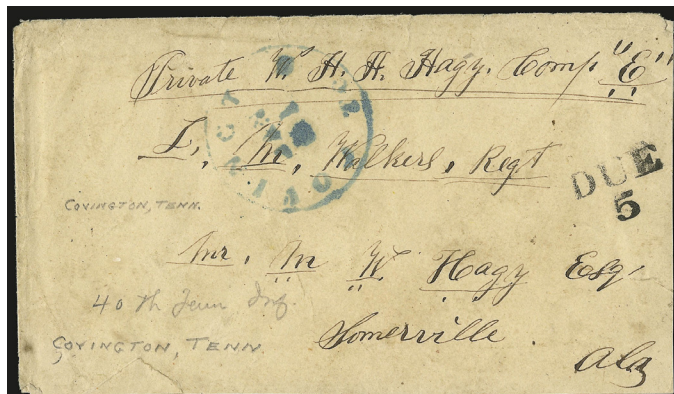 Private W. H. H. Hagy. Comp "E"
L, M, Walkers, Regt
DUE
5
COVINGTON, TENN.
Mr. M W Hagy Esq
40 th Tenn Inf
Somerville
COVINGTON, TENN.
Ala